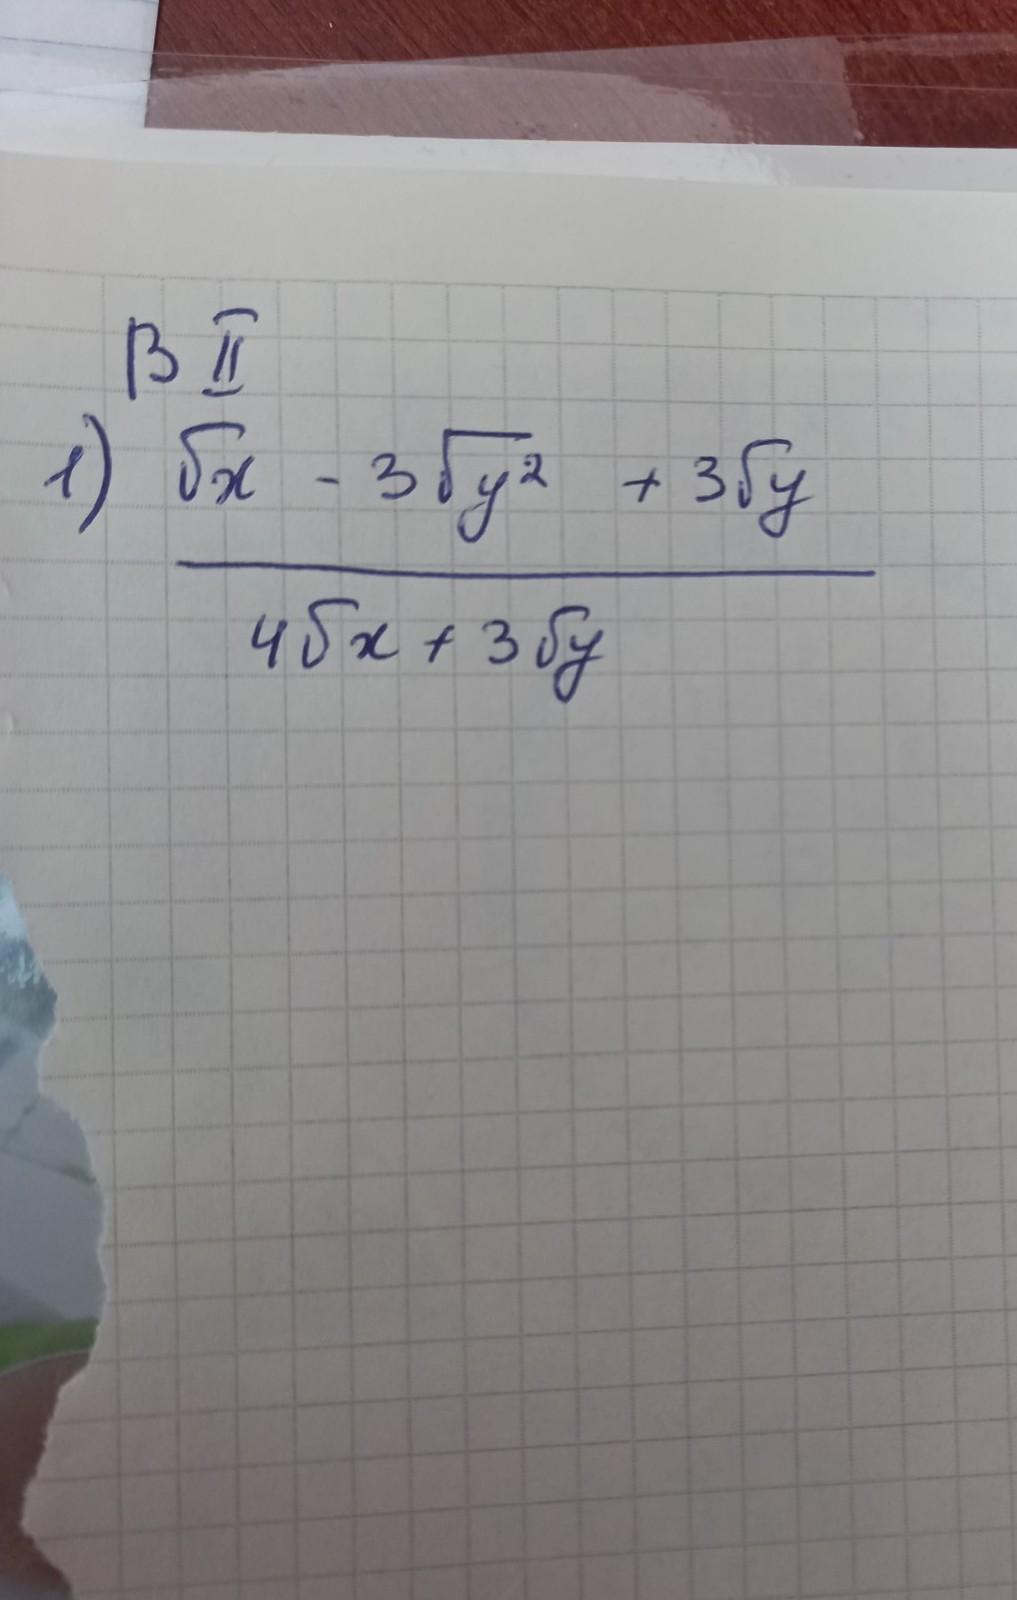 В II
1) √x - 3√y² + 3√y
4√x + 3√y